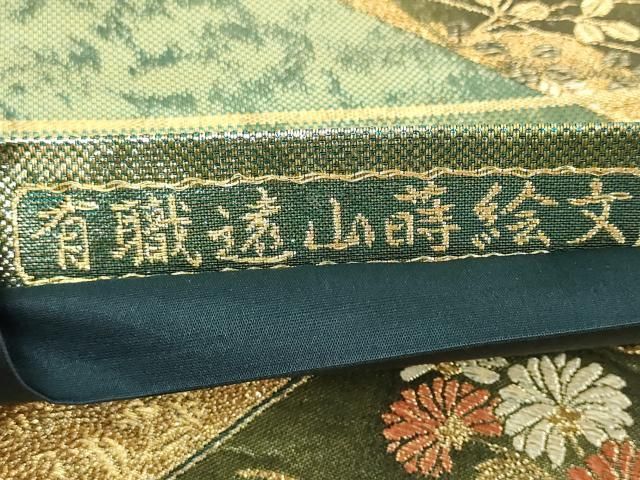 有職遠山蒔絵文